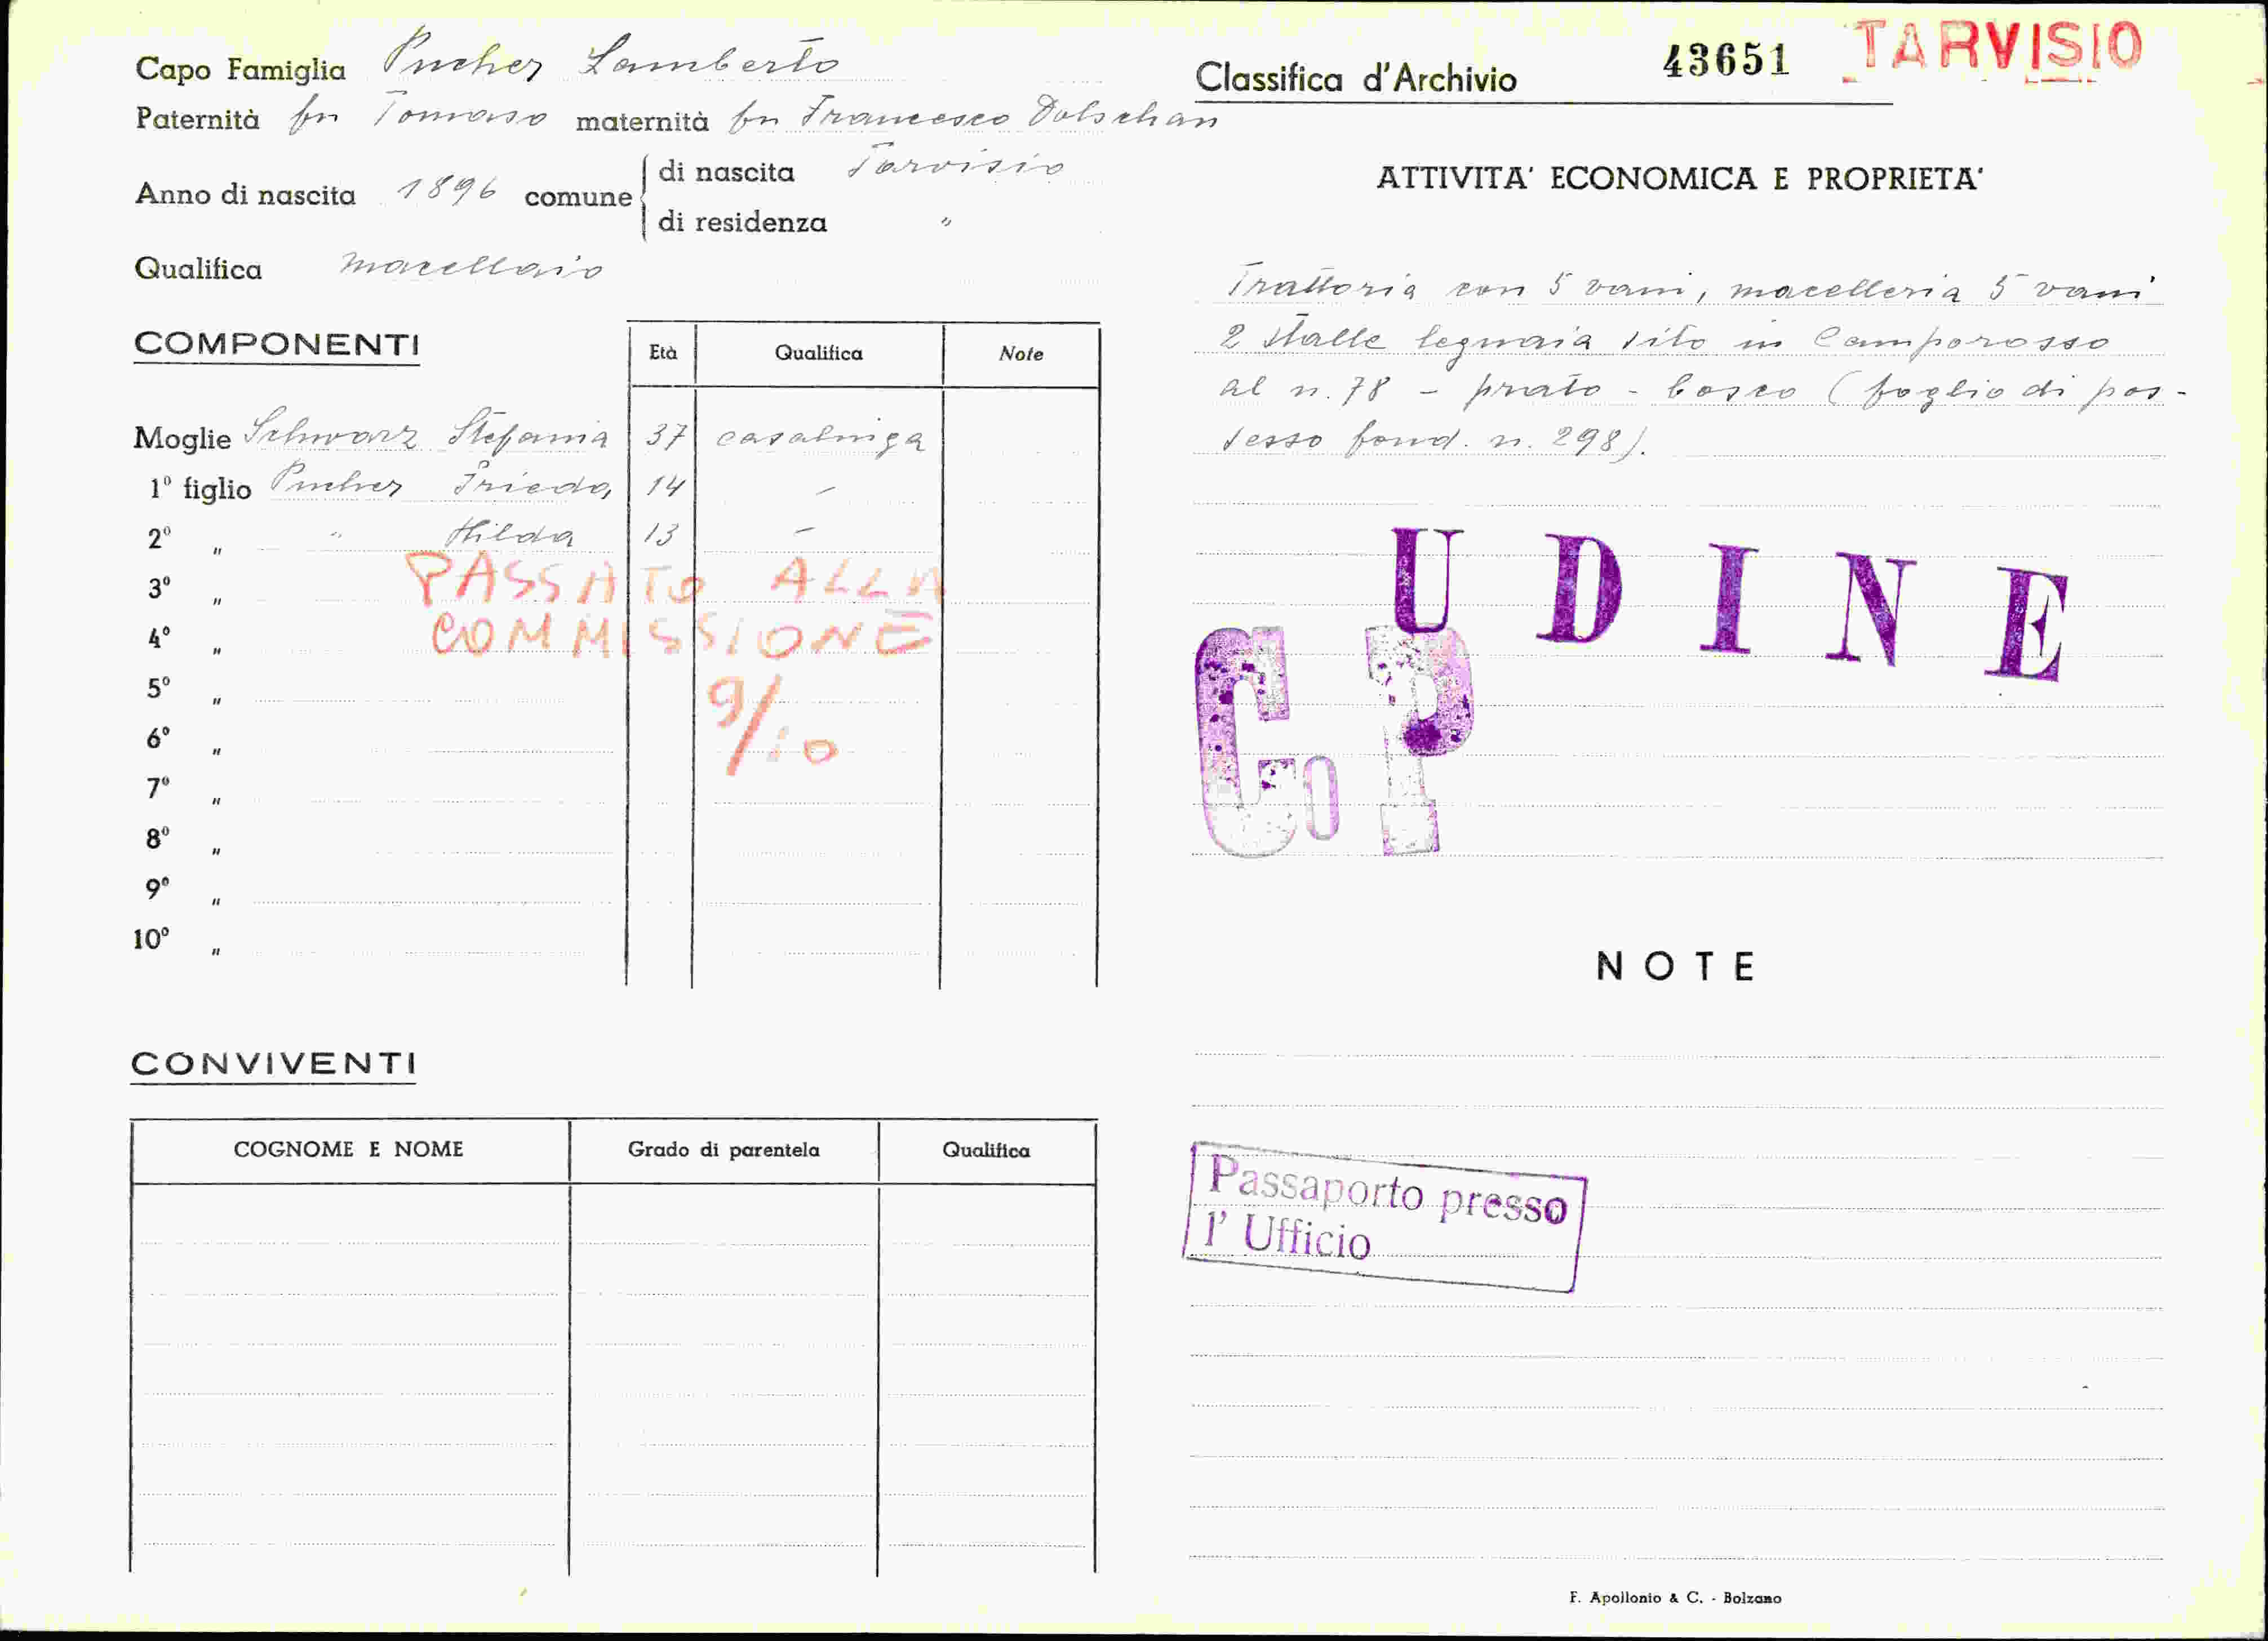 Capo Famiglia Pucher Lamberto
Paternità fu Tomaso maternità fu Francesco Dolschan
Anno di nascita 1896 comune di nascita Tarvisio
di residenza "
Qualifica macellaio
COMPONENTI
Età Qualifica Note
Moglie Schwarz Stefania 37 casalinga
1º figlio Pucher Frieda 14 -
2º " " Hilda 13 -
3º "
4º "
PASSATO ALLA
COMMISSIONE
9/10
5º "
6º "
7º "
8º "
9º "
10º "
CONVIVENTI
COGNOME E NOME Grado di parentela Qualifica
Classifica d'Archivio 43651 TARVISIO
ATTIVITA' ECONOMICA E PROPRIETA'
Trattoria con 5 vani, macelleria 5 vani
2 stalle legnaia sito in Camporosso
al n. 78 - prato - bosco (foglio di pos-
sesso fond. n. 298).
UDINE
Co P
NOTE
Passaporto presso
l' Ufficio
F. Apollonio & C. - Bolzano